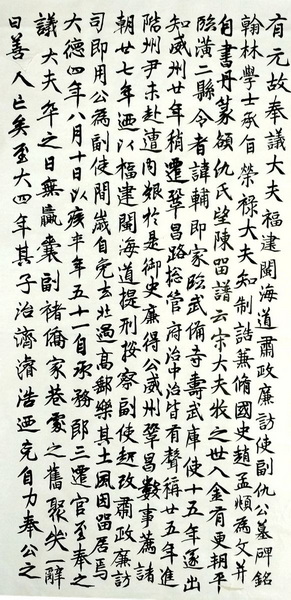 有元故奉議大夫福建閩海道肅政廉訪使副仇公墓碑銘
翰林學士承旨榮祿大夫知制誥兼脩國史趙孟頫為文并
自書丹篆額仇氏望陳留譜云宋大夫牧之世入金有更朔平
臨潢二縣令者諱輔即家臨武備寺壽武庫使十五年遂出
知威州廿年稍遷鞏昌路總管府治中治皆有聲稱廿五年進
階州尹未赴遭內艱於是御史廉得公威州鞏昌數事薦諸
朝廿七年迺以福建閩海道提刑按察副使起改肅政廉訪
司即用公為副使閒歲自免去北過高郵樂其土風因留居焉
大德四年八月十日以疾卒年五十一自承務郎三遷官至奉
議大夫卒之日無贏橐副褚僑家巷處之舊聚哭一辭
曰善人亡矣至大四年其子治濟濬浩迺克自力奉公之